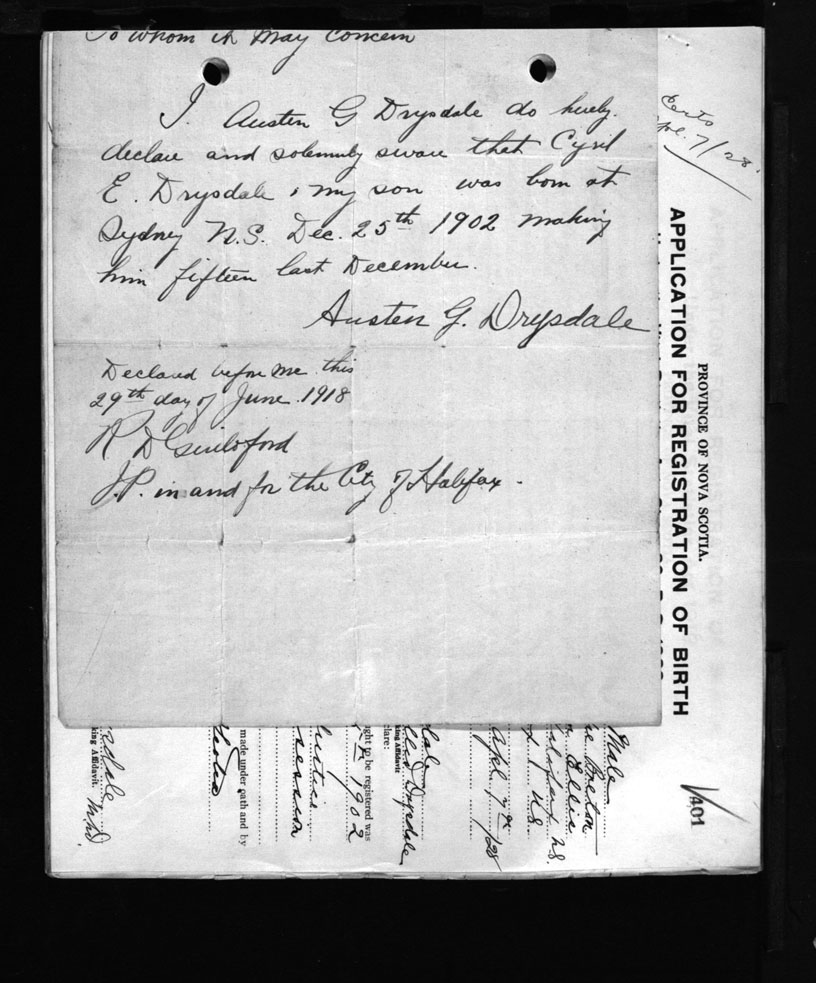 To whom it May Concern
I. Austen G Drysdale do hereby
declare and solemnly sware that Cyril
E. Drysdale, my son was born at
Sydney N.S. Dec. 25th 1902 making
him fifteen last December.
Austen G. Drysdale
Declared before me this
29th day of June 1918
R D Guildford
J.P. in and for the City of Halifax.
Certs
7/28.
PROVINCE OF NOVA SCOTIA.
APPLICATION FOR REGISTRATION OF BIRTH
401
Male
Bolton
Ellis
N.S.
Apl. 7th /28
Drysdale
clare:
king Affidavit
ght to be registered was
1902
Justice
session
made under oath and by
king Affidavit.